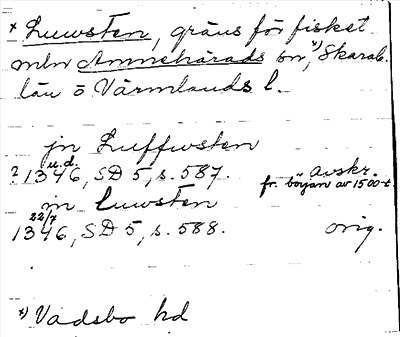 * Luwsten, gräns för fisket
mln Amnehärads sn, *) Skarab.
län o Värmlands l.
jn Luffwsten
? 1346, u.d. SD 5, s. 587. avskr.
fr. början av 1500-t.
jn luwsten
1346, 22/7 SD 5, s. 588. orig.
*) Vadsbo hd